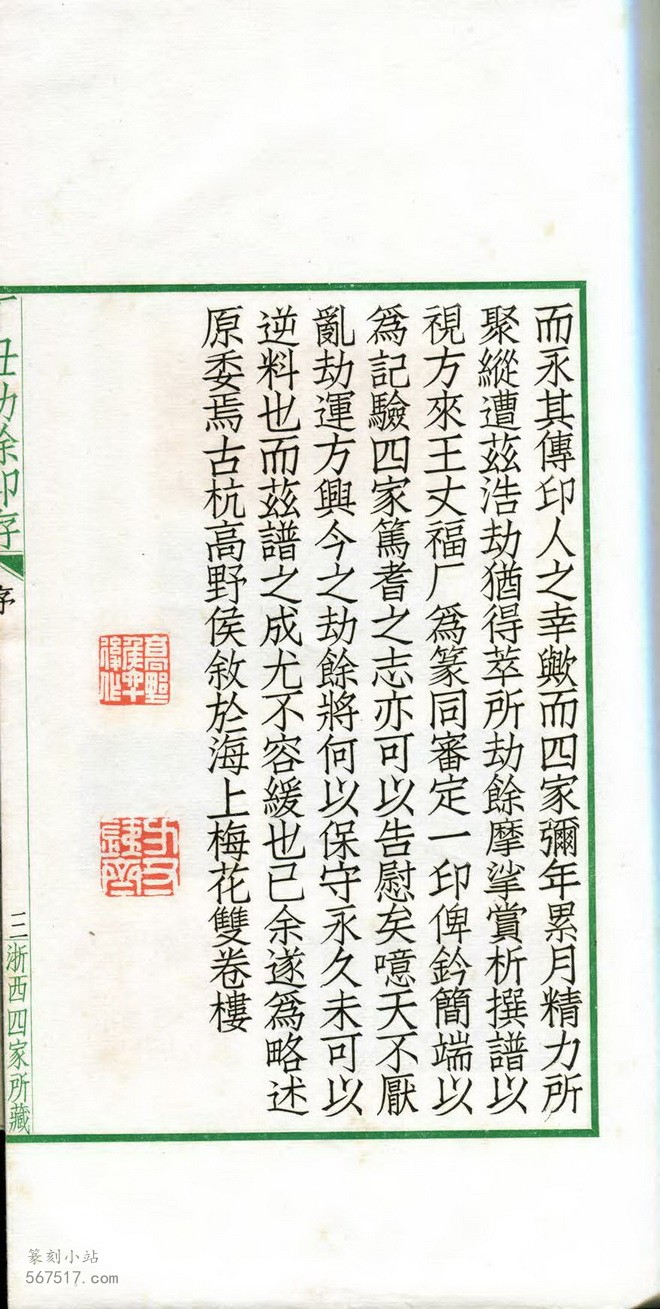 而永其傳印人之幸歟而四家彌年累月精力所
聚縱遭茲浩劫猶得萃所劫餘摩挲賞析撰譜以
視方來王丈福厂爲篆同審定一印俾鈐簡端以
爲記驗四家篤耆之志亦可以告慰矣噫天不厭
亂劫運方興今之劫餘將何以保守永久未可以
逆料也而茲譜之成尤不容緩也已余遂爲略述
原委焉古杭高野侯敘於海上梅花雙卷樓
高野侯辛
丁丑劫餘印存
序
三
浙西四家所藏
篆刻小站
567517.com